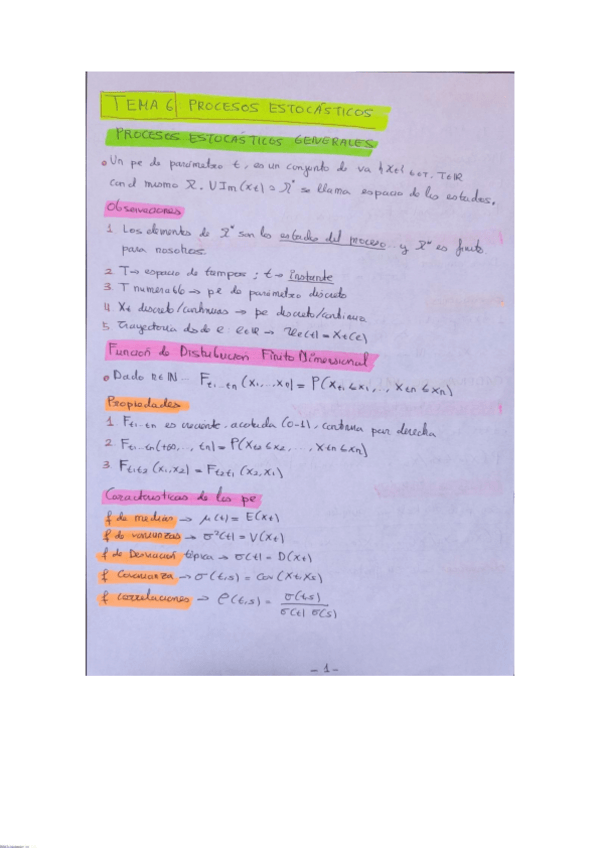 TEMA 6 PROCESOS ESTOCÁSTICOS
PROCESOS ESTOCÁSTICOS GENERALES
• Un pe de parámetro t, es un conjunto de va {Xt} t∈T, T∈IR
con el mismo Ω. U Im(xt) = Ω* se llama espacio de los estados.
Observaciones
1. Los elementos de Ω* son los estados del proceso.. y Ω* es finito
para nosotros.
2. T → espacio de tiempos ; t → Instante
3. T numerable → pe de parámetro discreto
4. Xt discreto/continuas → pe discreto/continuo
5. Trayectoria dado e: e∈IR → xe(t) = Xt(e)
Función de Distribución Finito Dimensional
• Dado n∈IN... Ft1...tn (x1,...xn) = P(Xt1 ≤ x1, .., Xtn ≤ xn)
Propiedades
1. Ft1...tn es creciente, acotada (0-1), continua por derecha
2. Ft1...tn(+∞, ..., tn) = P(Xt2 ≤ x2, ..., Xtn ≤ xn)
3. Ft1t2 (x1,x2) = Ft2t1 (x2,x1)
Características de los pe
f de medias → μ(t) = E(Xt)
f de varianzas → σ²(t) = V(Xt)
f de Desviación típica → σ(t) = D(Xt)
f Covarianza → σ(t,s) = Cov(Xt,Xs)
f correlaciones → ρ(t,s) = σ(t,s) / σ(t) σ(s)
- 1 -